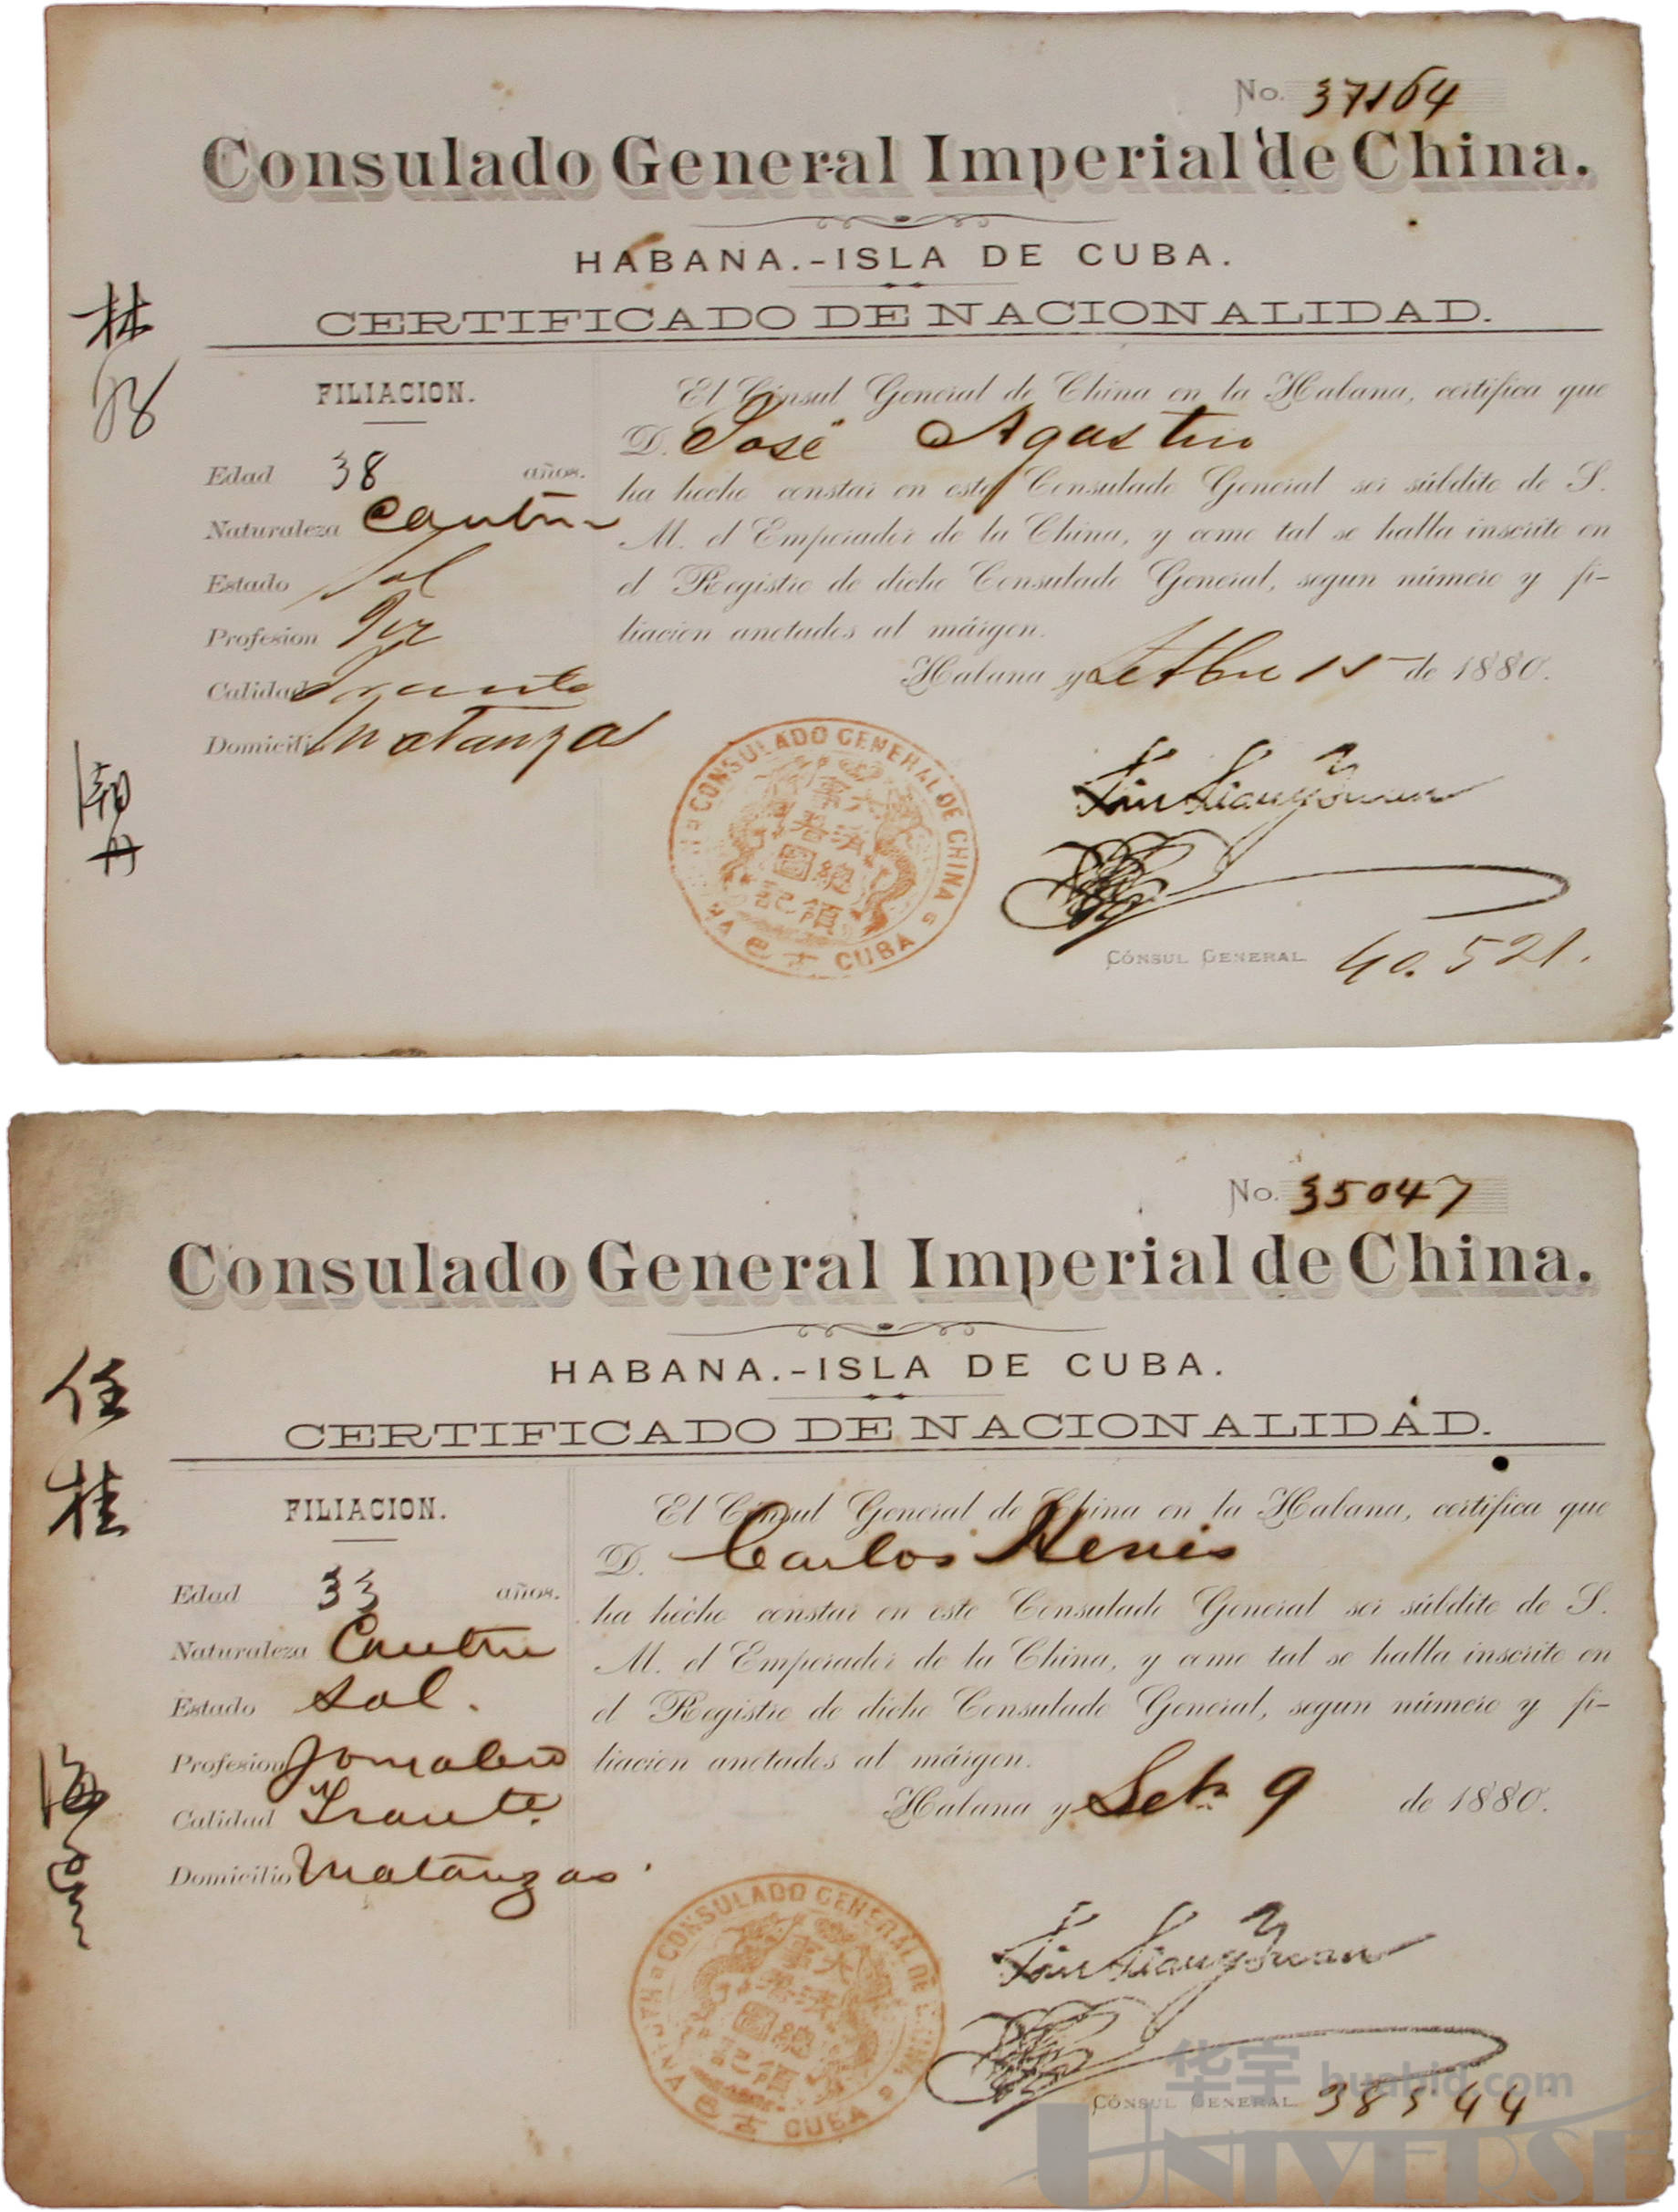 No. 37164
Consulado General Imperial de China.
HABANA.-ISLA DE CUBA.
CERTIFICADO DE NACIONALIDAD.
林
FILIACION.
Edad 38 años.
Naturaleza Canton
Estado Sol
Profesion
Calidad Traunte
Domicilio Matanzas
El Cónsul General de China en la Habana, certifica que
D. José Agustin
ha hecho constar en este Consulado General ser súbdito de S.
M. el Emperador de la China, y como tal se halla inscrito en
el Registro de dicho Consulado General, segun número y fi-
liacion anotados al márgen.
Habana y Setbre 15 de 1880.
CONSULADO GENERAL DE CHINA
CUBA
Lin Liang Yuan
CÓNSUL GENERAL 40.521.
No. 35047
Consulado General Imperial de China.
HABANA.-ISLA DE CUBA.
CERTIFICADO DE NACIONALIDAD.
任
桂
FILIACION.
Edad 33 años.
Naturaleza Canton
Estado Sol.
Profesion Jornalero
Calidad Traunte
Domicilio Matanzas
El Cónsul General de China en la Habana, certifica que
D. Carlos
ha hecho constar en este Consulado General ser súbdito de S.
M. el Emperador de la China, y como tal se halla inscrito en
el Registro de dicho Consulado General, segun número y fi-
liacion anotados al márgen.
Habana y Set. 9 de 1880.
CONSULADO GENERAL DE CHINA
CUBA
Lin Liang Yuan
CÓNSUL GENERAL 38544
华宇 huabid.com
UNIVERSE